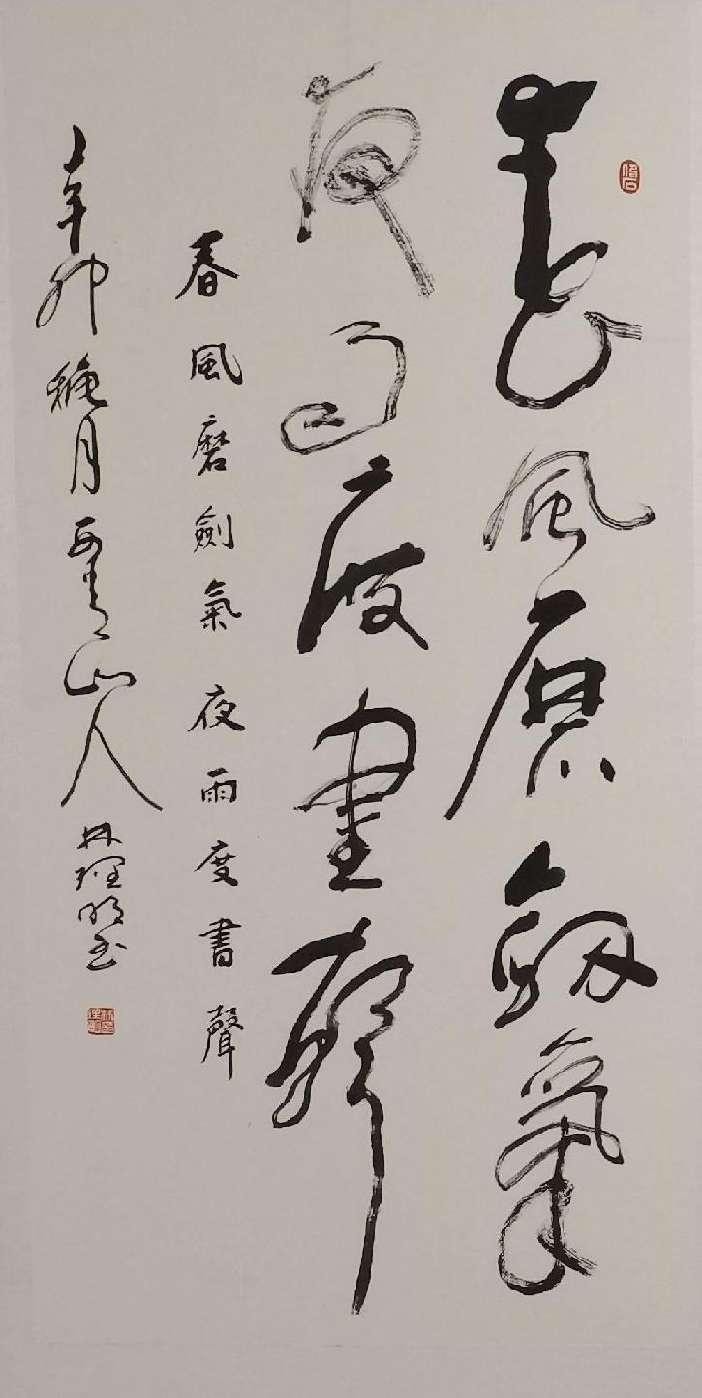 春風磨劍氣
夜雨度書聲
春風磨劍氣 夜雨度書聲
辛卯穐月 山人 林理明書